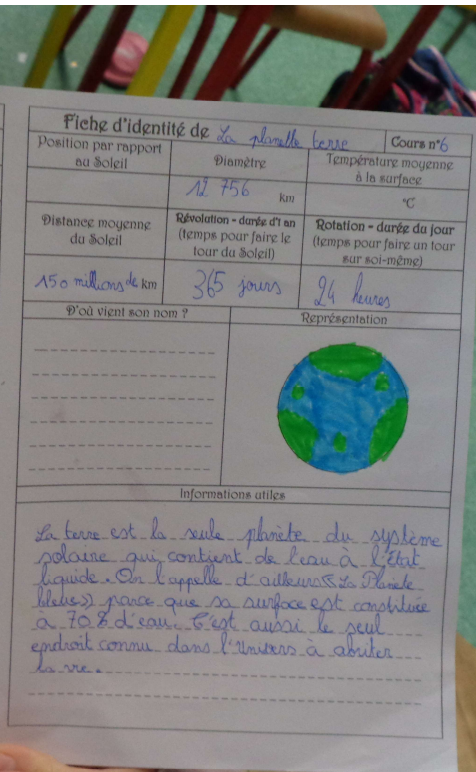 Fiche d'identité de La planette terre
Cours n°6
Position par rapport
au Soleil
Diamètre
Température moyenne
à la surface
12 756 km
°C
Distance moyenne
du Soleil
Révolution - durée d'1 an
(temps pour faire le
tour du Soleil)
Rotation - durée du jour
(temps pour faire un tour
sur soi-même)
150 millions de km
365 jours
24 heures
D'où vient son nom ?
Représentation
Informations utiles
La terre est la seule planète du système
solaire qui contient de l'eau à l'État
liquide. On l'appelle d'ailleurs « La Planète
bleue » parce que sa surface est constituée
à 70 % d'eau. C'est aussi le seul
endroit connu dans l'Univers à abriter
la vie.